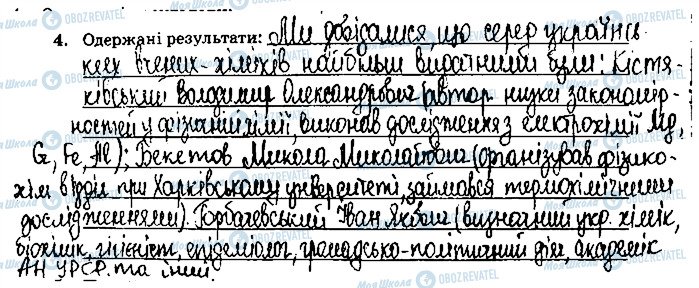 4. Одержані результати: Ми довідалися, що серед українсь-
ких вчених-хіміків найбільш видатними були: Кістя-
ківський володимир Олександрович (автор низки закономір-
ностей у фізичній хімії, виконав дослідження з електрохімії Mg,
Cr, Fe, Al); Бекетов Микола Миколайович (організував фізико-
хім відділ при Харківському університеті, займався термохімічними
дослідженнями). Горбачевський Іван Якович (визначний укр. хімік,
біохімік, гігієніст, епідеміолог, громадсько-політичний діяч, академік
АН УРСР. та інші.